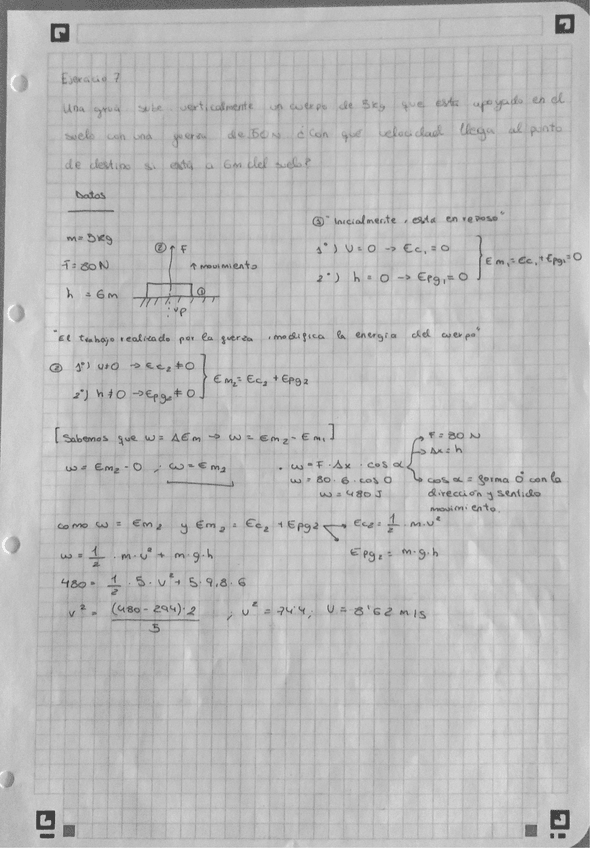 Ejercicio 7
Una grúa sube verticalmente un cuerpo de 5kg que está apoyado en el
suelo con una fuerza de 80N ¿Con que velocidad llega al punto
de destino si está a 6m del suelo?
Datos
m = 5kg
F = 80 N
h = 6m
② F
↑ movimiento
①
P
① "Inicialmente, esta en reposo"
1º) V = 0 → Ec₁ = 0
2º) h = 0 → Epg₁ = 0
Em₁ = Ec₁ + Epg₁ = 0
"El trabajo realizado por la fuerza, modifica la energía del cuerpo"
② 1º) v≠0 → Ec₂ ≠ 0
2º) h ≠ 0 → Epg₂ ≠ 0
Em₂ = Ec₂ + Epg₂
[Sabemos que W = ΔEm → W = Em₂ - Em₁]
W = Em₂ - 0 ; W = Em₂
• W = F · Δx · cos α
W = 80 · 6 · cos 0
W = 480 J
F = 80 N
Δx = h
cos α = forma 0º con la
dirección y sentido
movimiento.
como W = Em₂ y Em₂ = Ec₂ + Epg₂
Ec₂ = 1/2 · m · v²
Epg₂ = m · g · h
W = 1/2 · m · v² + m · g · h
480 = 1/2 · 5 · v² + 5 · 9,8 · 6
v² = (480 - 294) · 2 / 5 ; v² = 74'4 ; V = 8'62 m/s